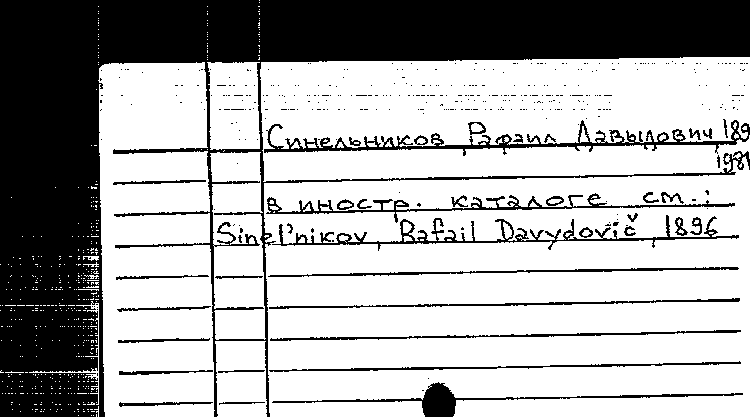 Синельников, Рафаил Давыдович, 189
1981
в иностр. каталоге см.:
Sinel'nikov, Rafail Davydovič, 1896